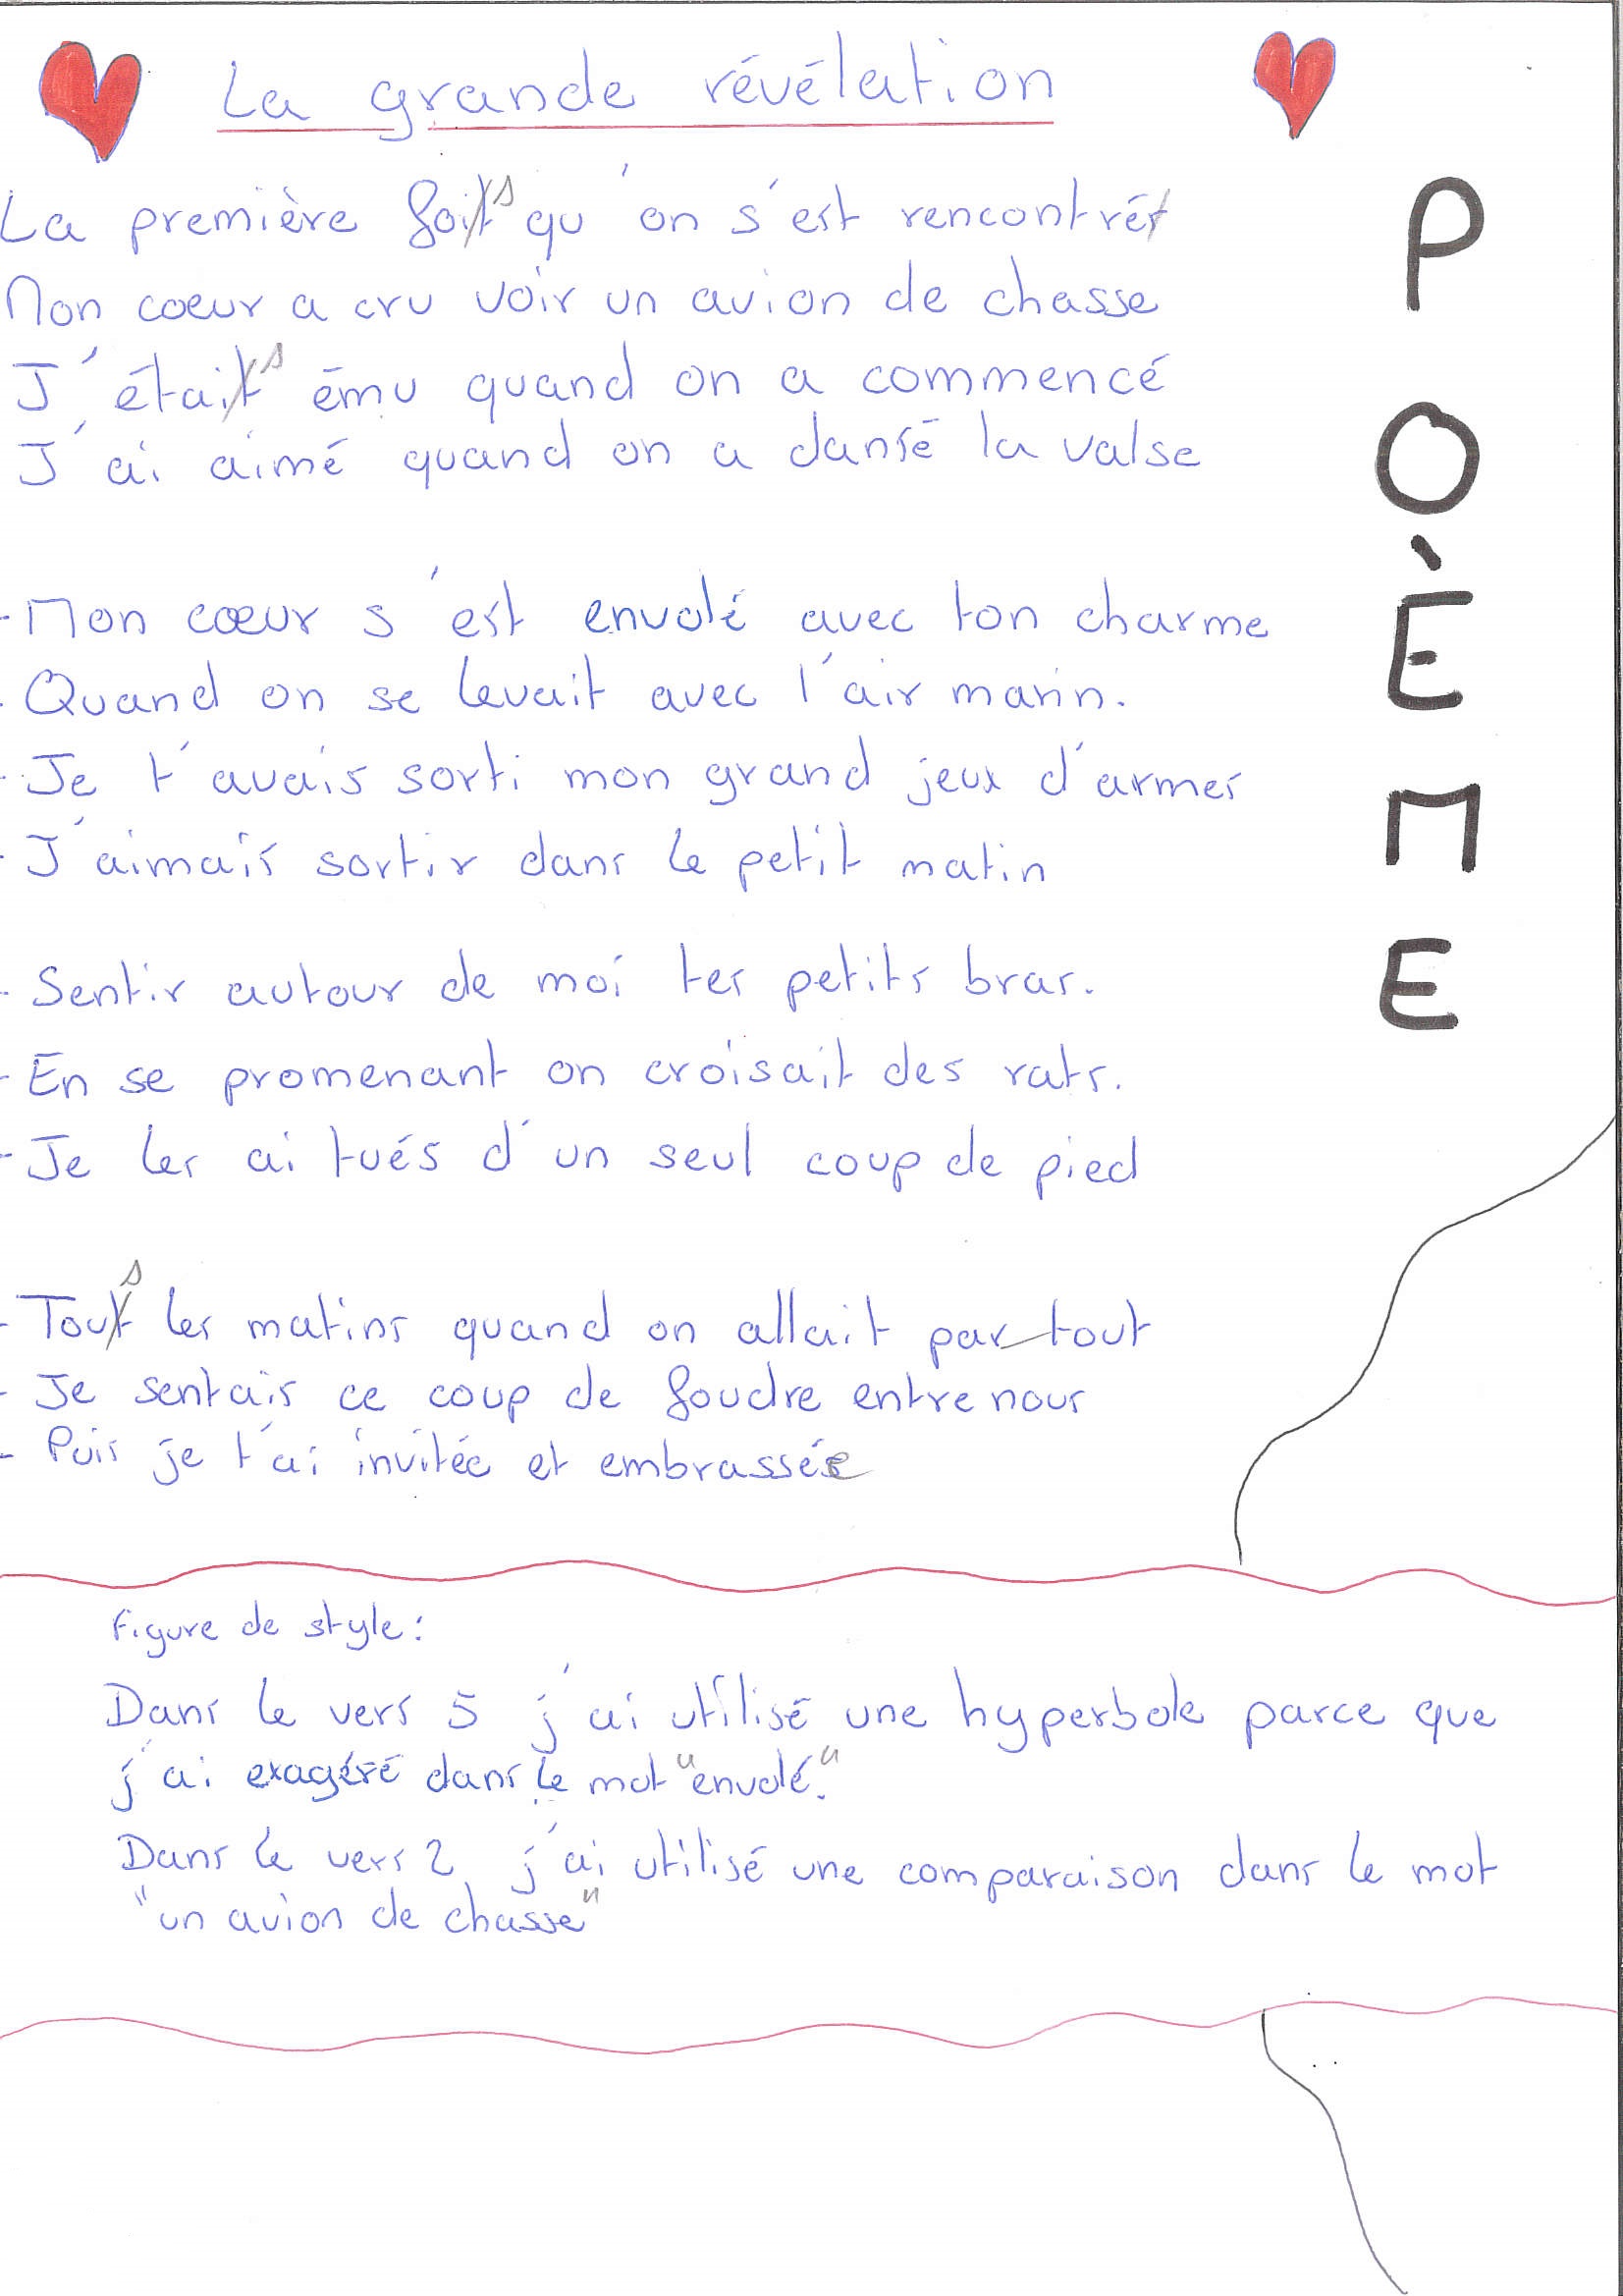 La grande révélation
La première fois qu'on s'est rencontré
Mon coeur a cru voir un avion de chasse
J'étais ému quand on a commencé
J'ai aimé quand on a dansé la valse
- Mon cœur s'est envolé avec ton charme
- Quand on se levait avec l'air marin.
- Je t'avais sorti mon grand jeux d'armes
- J'aimais sortir dans le petit matin
- Sentir autour de moi tes petits bras.
- En se promenant on croisait des rats.
- Je les ai tués d'un seul coup de pied
- Tous les matins quand on allait partout
- Je sentais ce coup de foudre entre nous
- Puis je t'ai invitée et embrassée
POÈME
Figure de style :
Dans le vers 5 j'ai utilisé une hyperbole parce que
j'ai exagéré dans le mot "envolé."
Dans le vers 2 j'ai utilisé une comparaison dans le mot
"un avion de chasse"